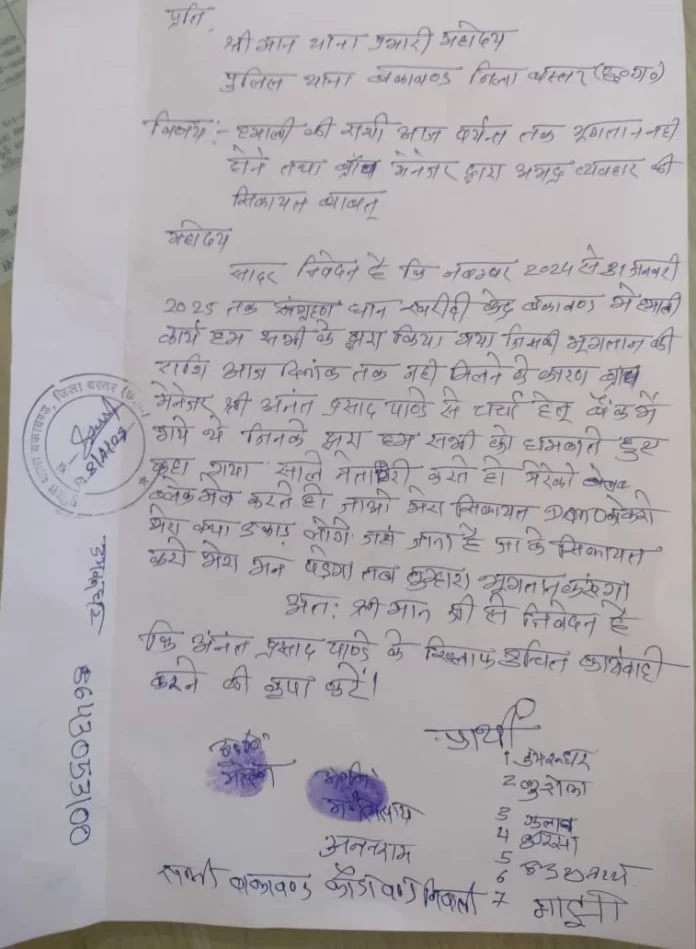 प्रति,
श्री मान थाना प्रभारी महोदय
पुलिस थाना बकावण्ड जिला बस्तर (छ०ग०)
विषय :- हमाली की राशी आज पर्यन्त तक भूगतान नही
होने तथा ब्रांच मेनेजर द्वारा अभद्र व्यवहार की
सिकायत बाबत्
महोदय
सादर निवेदन है कि नवम्बर 2024 से 31 जनवरी
2025 तक संग्रहण धान खरीदी केंद्र बकावण्ड में हमाली
कार्य हम सभी के द्वारा किया गया जिसकी भूगतान की
राशि आज दिनांक तक नही मिलने के कारण ब्रांच
मेनेजर श्री अनंत प्रसाद पाण्डे से चर्चा हेतू बैंक में
गये थे जिनके द्वारा हम सभी को धमकाते हुए
कहा गया साले नेतागिरी करते हो मेरेको
ब्लेकमेल करते हो जाओ मेरा सिकायत करो
मेरा क्या उखाड़ लोगे जहां जाना है जा के सिकायत
करो मेरा मन पड़ेगा तब तुम्हारा भूगतान करूंगा
अतः श्री मान जी से निवेदन है
कि अनंत प्रसाद पाण्डे के खिलाफ उचित कार्यवाही
करने की कृपा करें।
प्रार्थी
1
2
3 गुलाब
4
5
6
7 माझी
अनतराम
सभी बाकावण्ड निवासी
थाना बकावण्ड, जिला बस्तर
8643053100